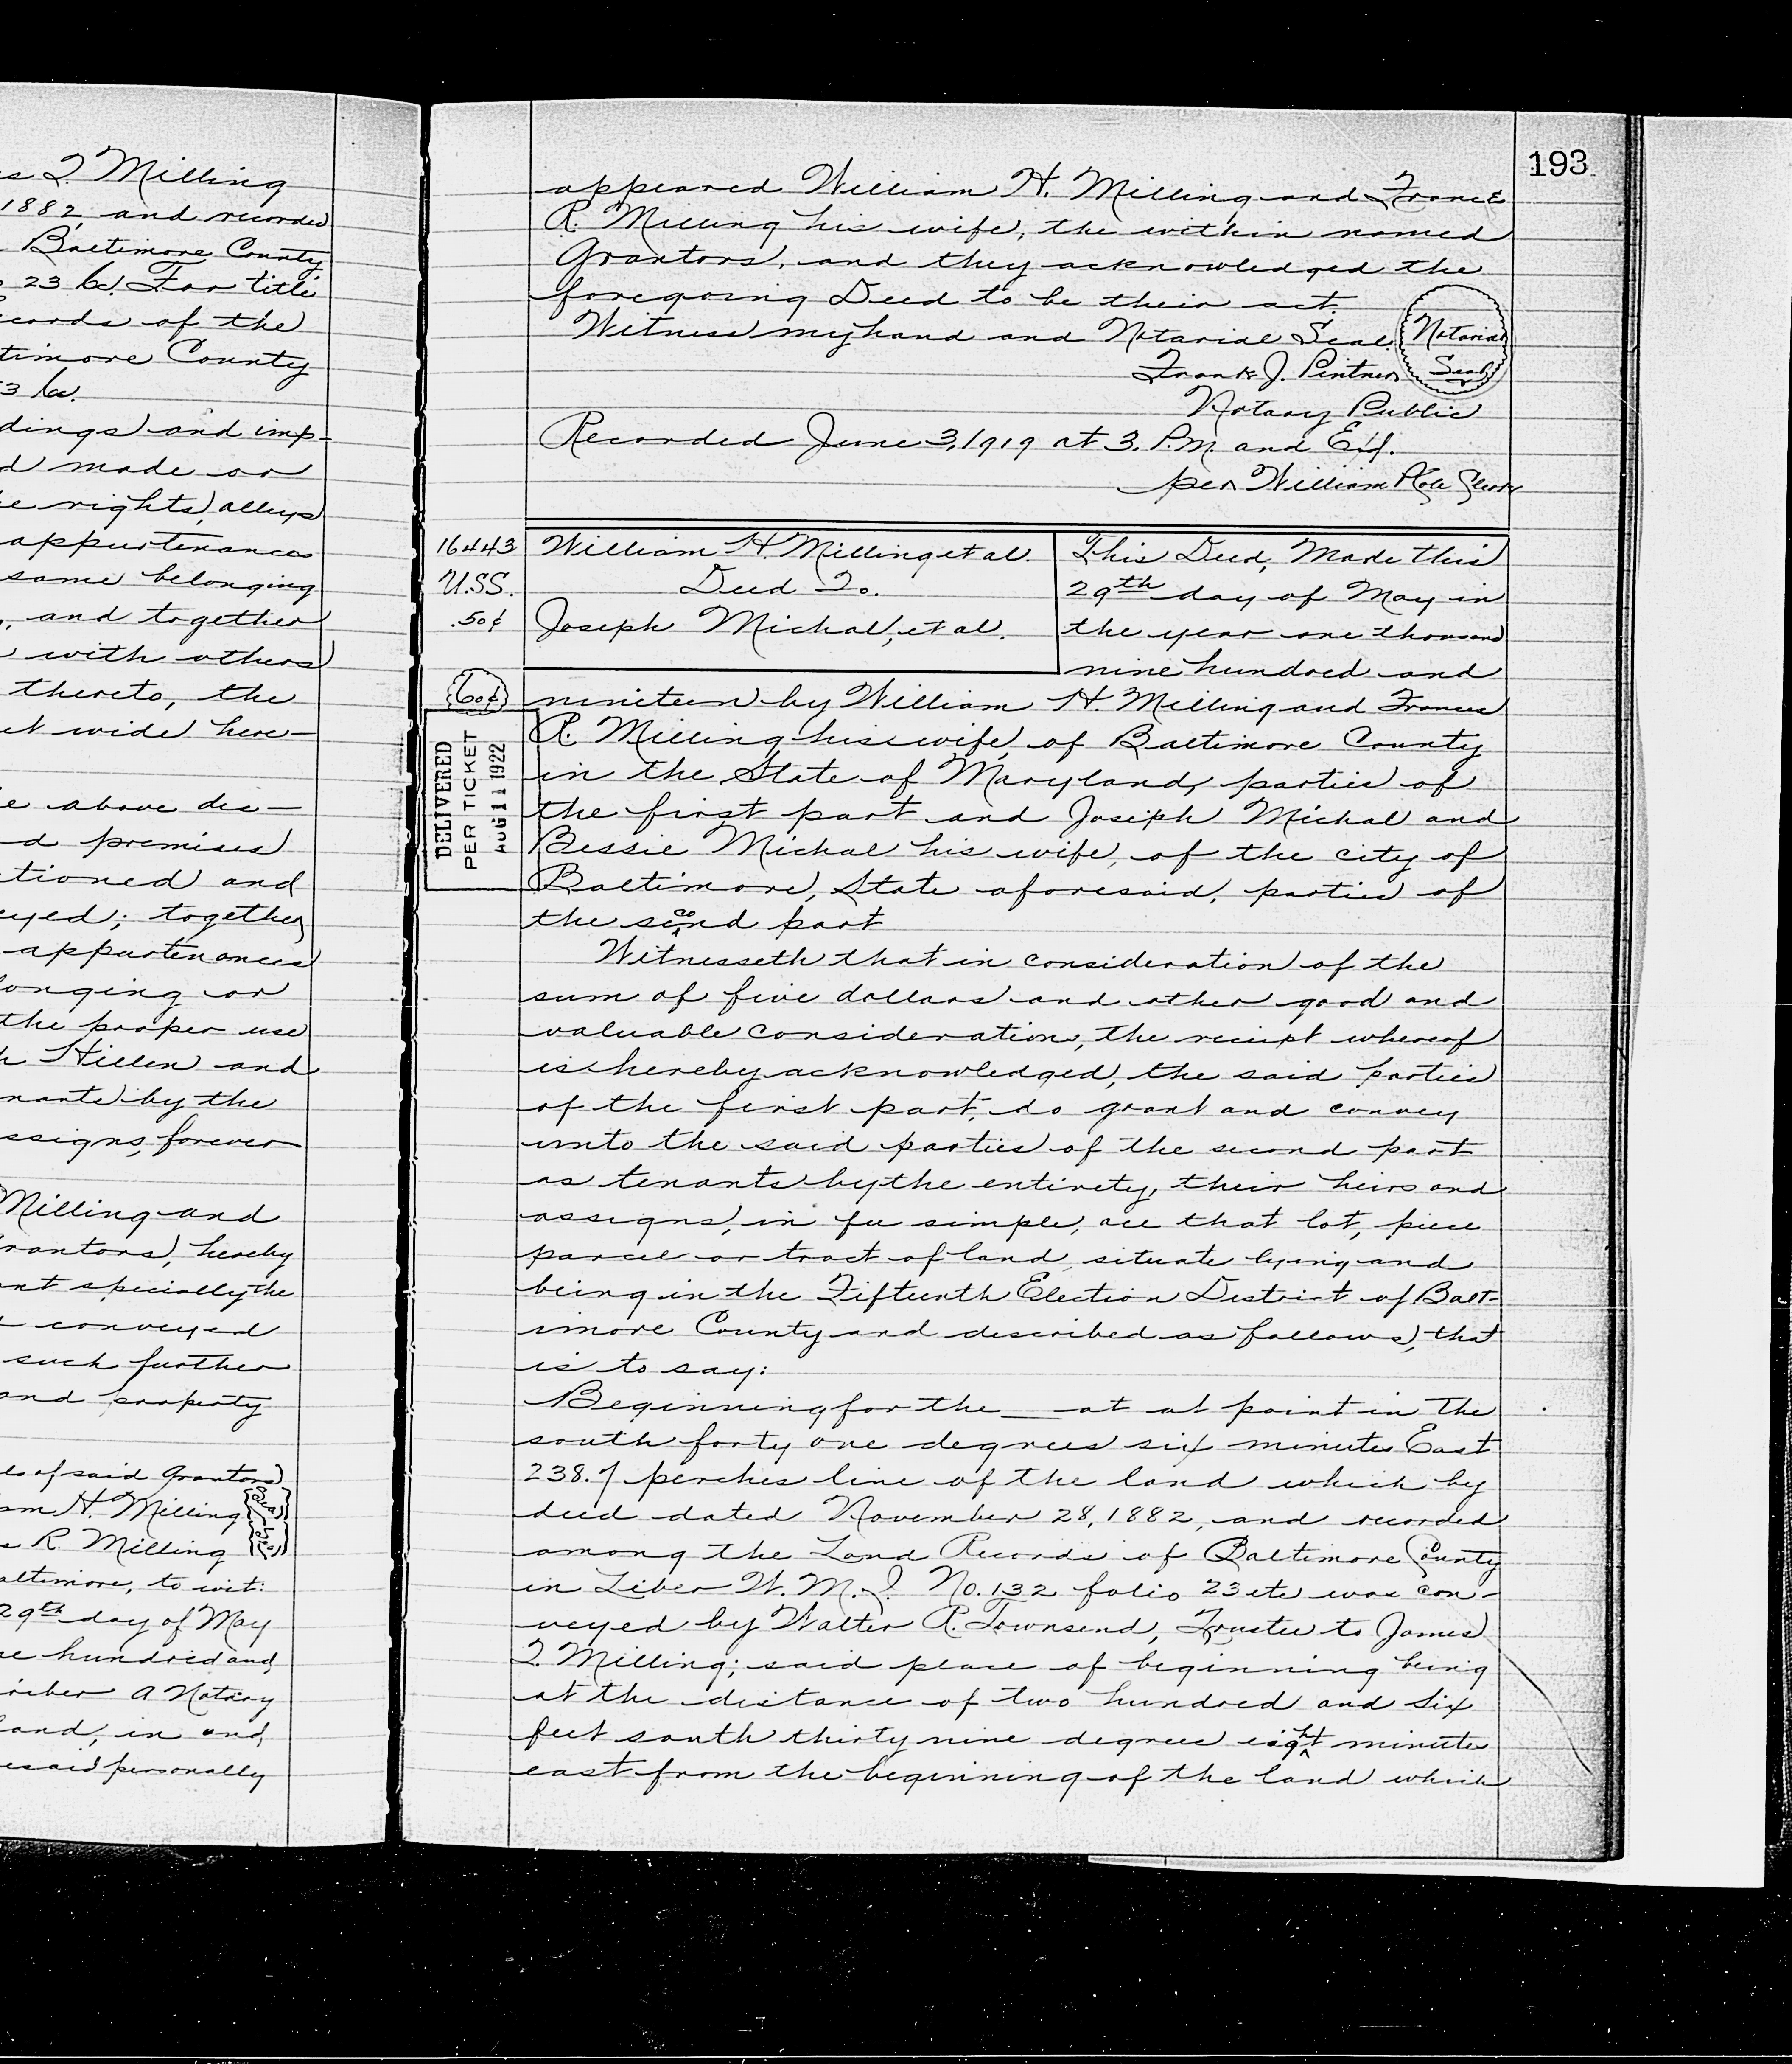 s T. Milling
1882, and recorded
Baltimore County
23 &c. For title
cords of the
timore County
3 &c.
dings and imp-
d made or
e rights, alleys
appurtenances
same belonging
, and together
with others
thereto, the
et wide here-
e above des-
d premises
tioned and
eyed; together
appurtenances
longing or
the proper use
h Hillen and
nants by the
ssigns, forever
Milling and
rantors, hereby
ant specially the
conveyed
such further
and property
ls of said Grantors
am H. Milling (Seal)
s R. Milling (Seal)
altimore, to wit:
29th day of May
ne hundred and
criber a Notary
land, in and
esaid personally
193
appeared William H. Milling and Frances
R. Milling his wife, the within named
Grantors, and they acknowledged the
foregoing Deed to be their act.
Witness my hand and Notarial Seal.
Notarial
Seal
Frank J. Pintner
Notary Public
Recorded June 3, 1919 at 3. P.M. and Exd.
per William P Cole Clerk
16443
U.S.S.
.50¢
William H. Milling et al.
Deed To.
Joseph Michal, et al.
This Deed, Made this
29th day of May in
the year one thousand
nine hundred and
60¢
DELIVERED
PER TICKET
AUG 11 1922
nineteen by William H. Milling and Frances
R. Milling his wife, of Baltimore County
in the State of Maryland, parties of
the first part and Joseph Michal and
Bessie Michal his wife, of the city of
Baltimore, State aforesaid, parties of
the second part
Witnesseth that in consideration of the
sum of five dollars and other good and
valuable considerations, the receipt whereof
is hereby acknowledged, the said parties
of the first part, do grant and convey
unto the said parties of the second part
as tenants by the entirety, their heirs and
assigns, in fee simple, all that lot, piece
parcel or tract of land, situate lying and
being in the Fifteenth Election District of Balt-
imore County and described as follows, that
is to say:
Beginning for the __ at at point in the
south forty one degrees six minutes East
238.7 perches line of the land which by
deed dated November 28, 1882, and recorded
among the Land Records of Baltimore County
in Liber W.M.I. No. 132 folio 23 etc was con-
veyed by Walter R. Townsend, Trustee to James
T. Milling; said place of beginning being
at the distance of two hundred and six
feet south thirty nine degrees eight minutes
east from the beginning of the land which